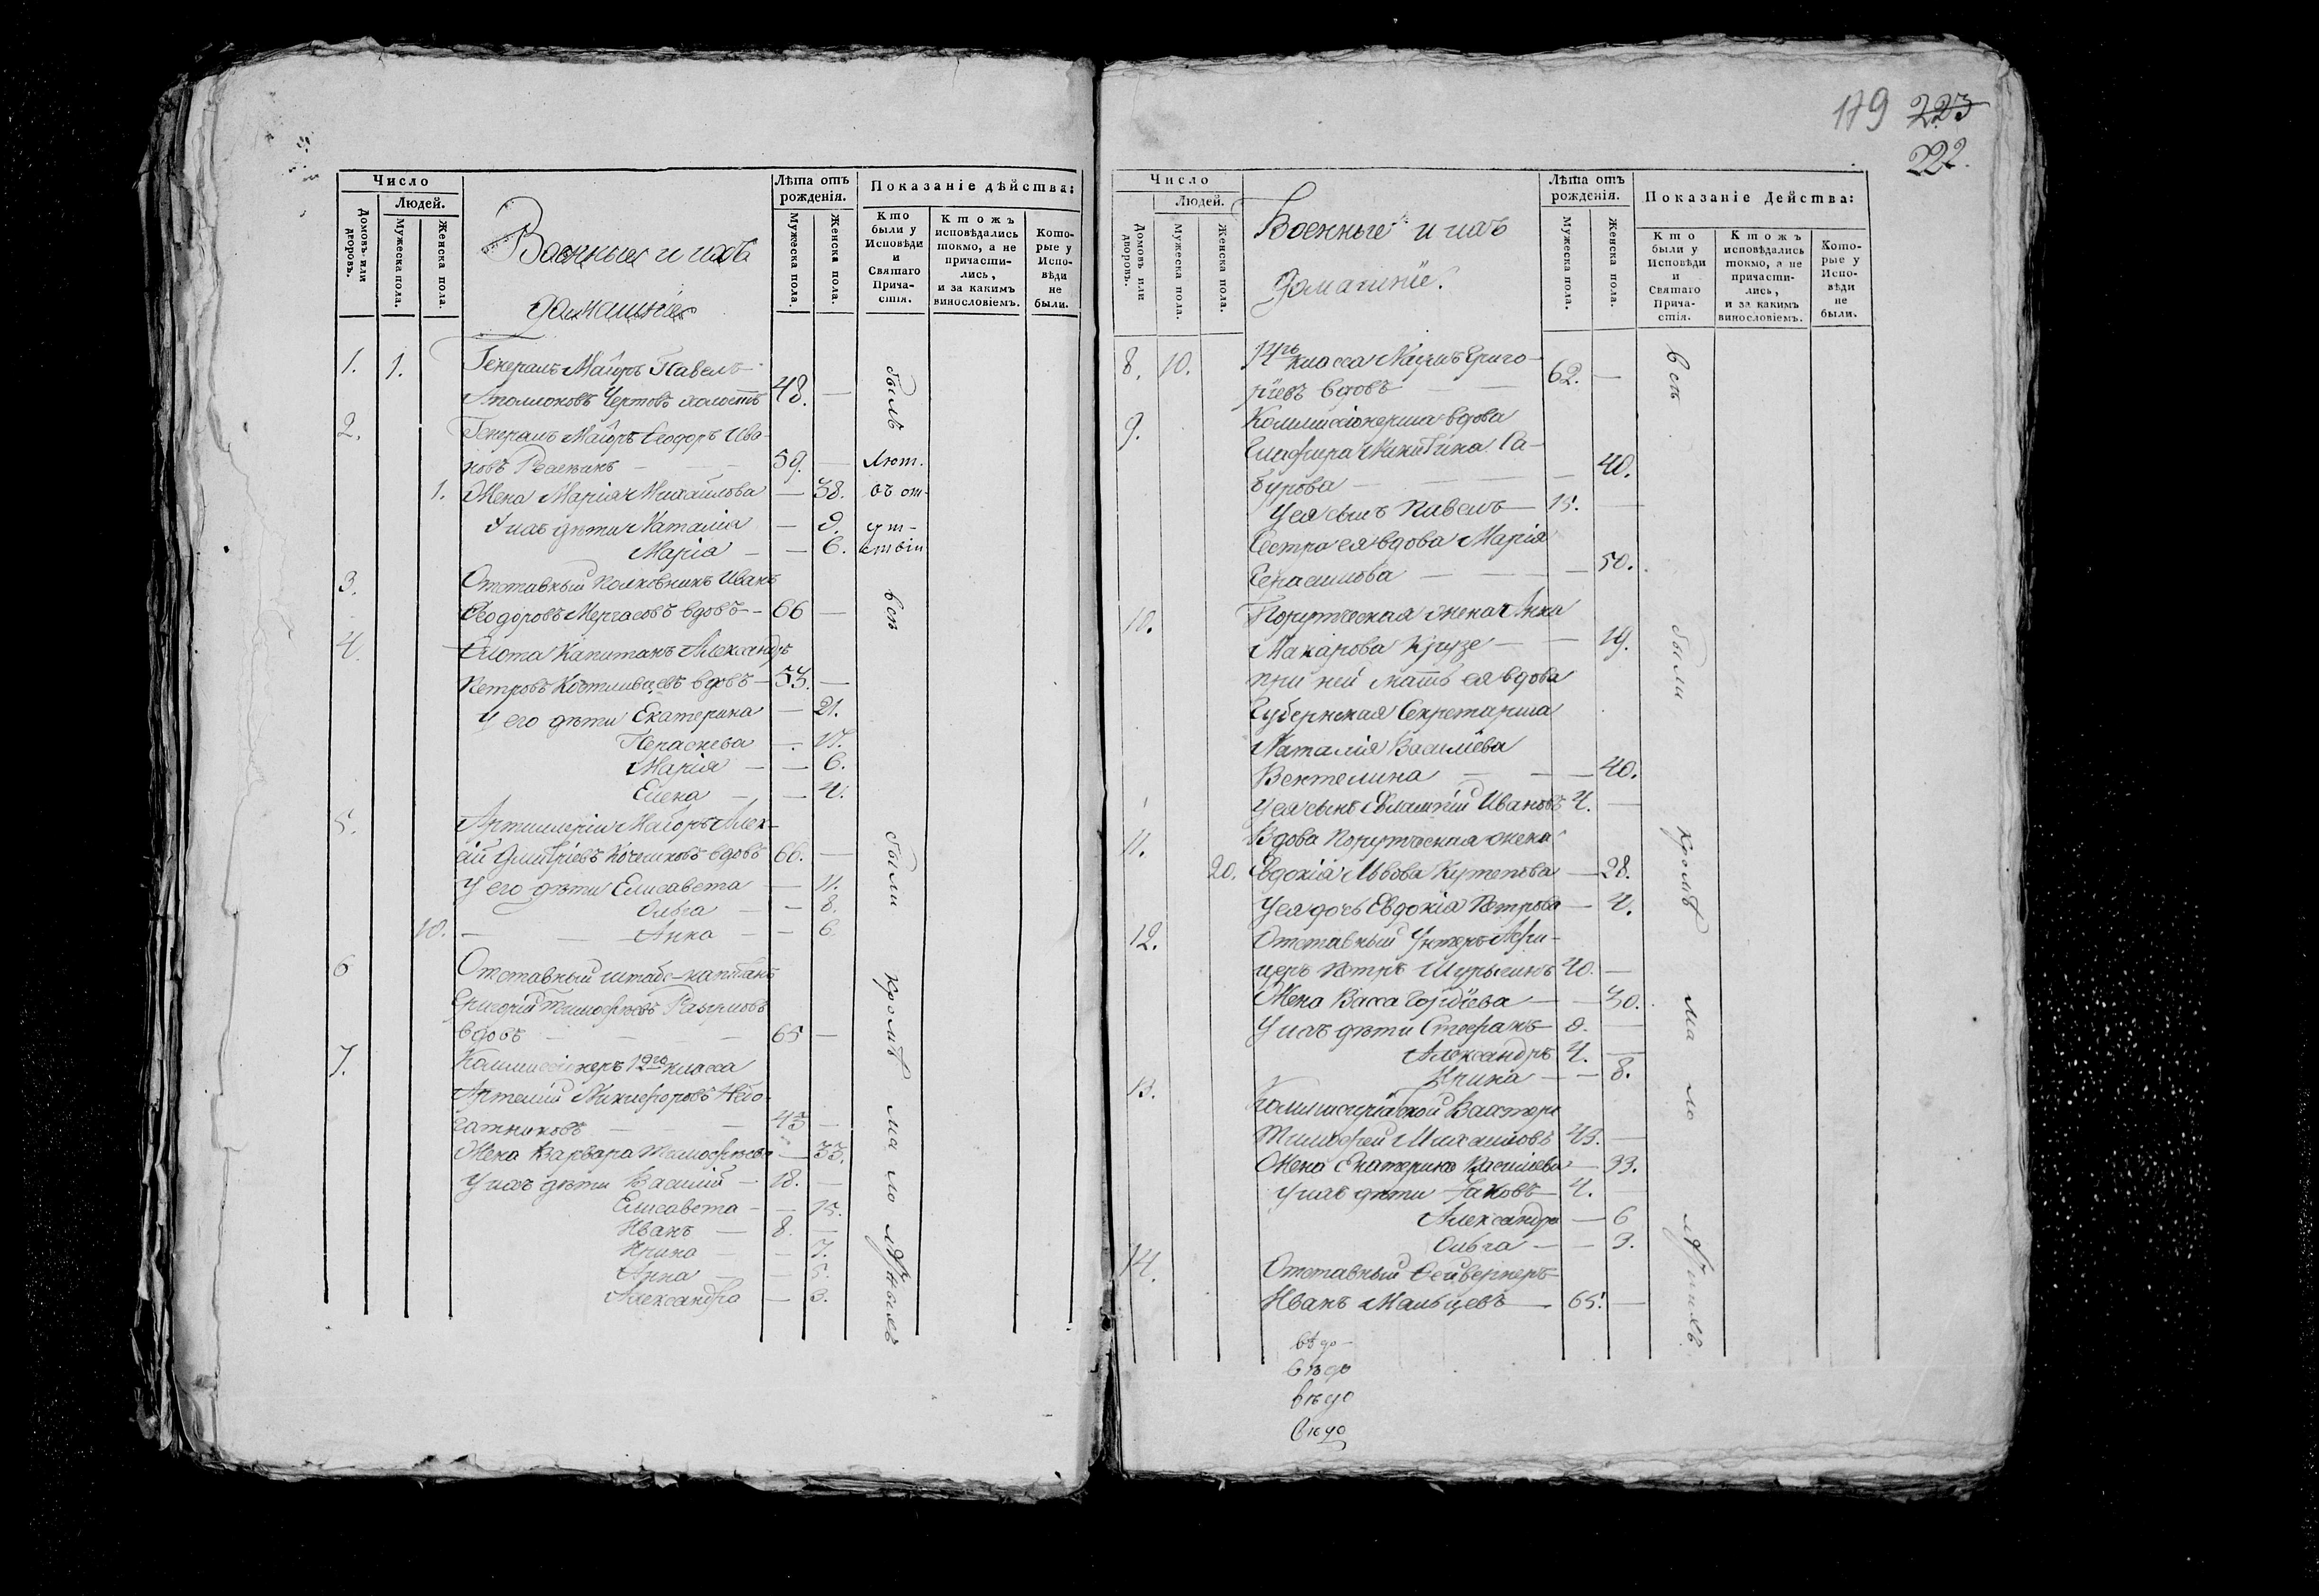 179 223
222.
Число
Людей.
Домовъ или дворовъ.
Мужеска пола.
Женска пола.
Военныя и ихъ
домашнія
Лѣта отъ рожденія.
Мужеска пола.
Женска пола.
Показаніе дѣйства:
Кто были у Исповѣди и Святаго Причастія.
Ктожъ исповѣдались токмо, а не причастились, и за какимъ винословіемъ.
Которые у Исповѣди не были.
1. 1. Генералъ Маіоръ Павелъ
Аполлоновъ Чертовъ холостъ 48. —
былъ
2. Генералъ Маіоръ Ѳеодоръ Ива-
новъ — 59. — Лют.
1. Жена Марія Михайлова — 38. въ от-
У ихъ дѣти Наталія — 9. сут-
Марія — — 6. ствіи
3. Отставный полковникъ Иванъ
Ѳеодоровъ Мергасовъ вдовъ — 66 —
всѣ
4. Флота Капитанъ Александръ
Петровъ Костливцевъ вдовъ — 53. —
У его дѣти Екатерина — 21.
Параскева —
Марія — — 6.
Елена — — 4.
5. Артиллеріи Маіоръ Алек-
ѣй Дмитріевъ вдовъ 66. —
У его дѣти Елисавета — 11.
Ольга — — 8.
10. — — Анна — — 6.
были
6 Отставный штабс-капитанъ
Григорій Тимофѣевъ
вдовъ — — — 65 —
7. Коммиссіонеръ 12го класса
Артемій Никифоровъ Небо-
гатиковъ — — — 43 —
Жена Варвара Тимофѣева — 33.
У ихъ дѣти Василій — 18. —
Елисавета — — 15.
Иванъ — 8. —
Ирина — — 7.
Анна — — 5.
Александра — 3.
кромѣ малолѣтныхъ
Число
Людей.
Домовъ или дворовъ.
Мужеска пола.
Женска пола.
Военные и ихъ
домашніе.
Лѣта отъ рожденія.
Мужеска пола.
Женска пола.
Показаніе Действа:
Кто были у Исповѣди и Святаго Причастія.
Ктожъ исповѣдались токмо, а не причастились, и за какимъ винословіемъ.
Которые у Исповѣди не были.
8. 10. 14го класса Григо-
рьевъ вдовъ — — 62. —
всѣ
9. Коммиссіонерша вдова
Глафира Никитина Са-
бурова — — — — 40.
У ея сынъ Павелъ — 15. —
Сестра ея вдова Марія
Герасимова — — — 50.
10. Поручческая жена Анна
Макарова Крузе — — 19.
при ней мать ея вдова
Губернская Секретарша
Наталія Васильева
Вентелина — — — 40.
У ея сынъ Ивановъ 4. —
были
11. Вдова Поручческая жена
20. Евдокія Львова Кутепова — 28.
У ея дочь Евдокія Петрова — 4.
12. Отставный Унтеръ Афи-
церъ Петръ Шурыгинъ 40. —
Жена Васса Гордѣева — — 30.
У ихъ дѣти Стефанъ — 9. —
Александръ 4. —
Ирина — — 8.
13. Коммисаріатской Вахтеръ
Тимофей Михайловъ 43. —
Жена Екатерина Васильева — 33.
У ихъ дѣти Іаковъ — 4. —
Александра — 6
Ольга — — 3.
14. Отставный Фейверкеръ
Иванъ Мальцевъ — 65. —
кромѣ малолѣтнихъ.
вѣдо-
вѣдо
вѣдо
вѣдо